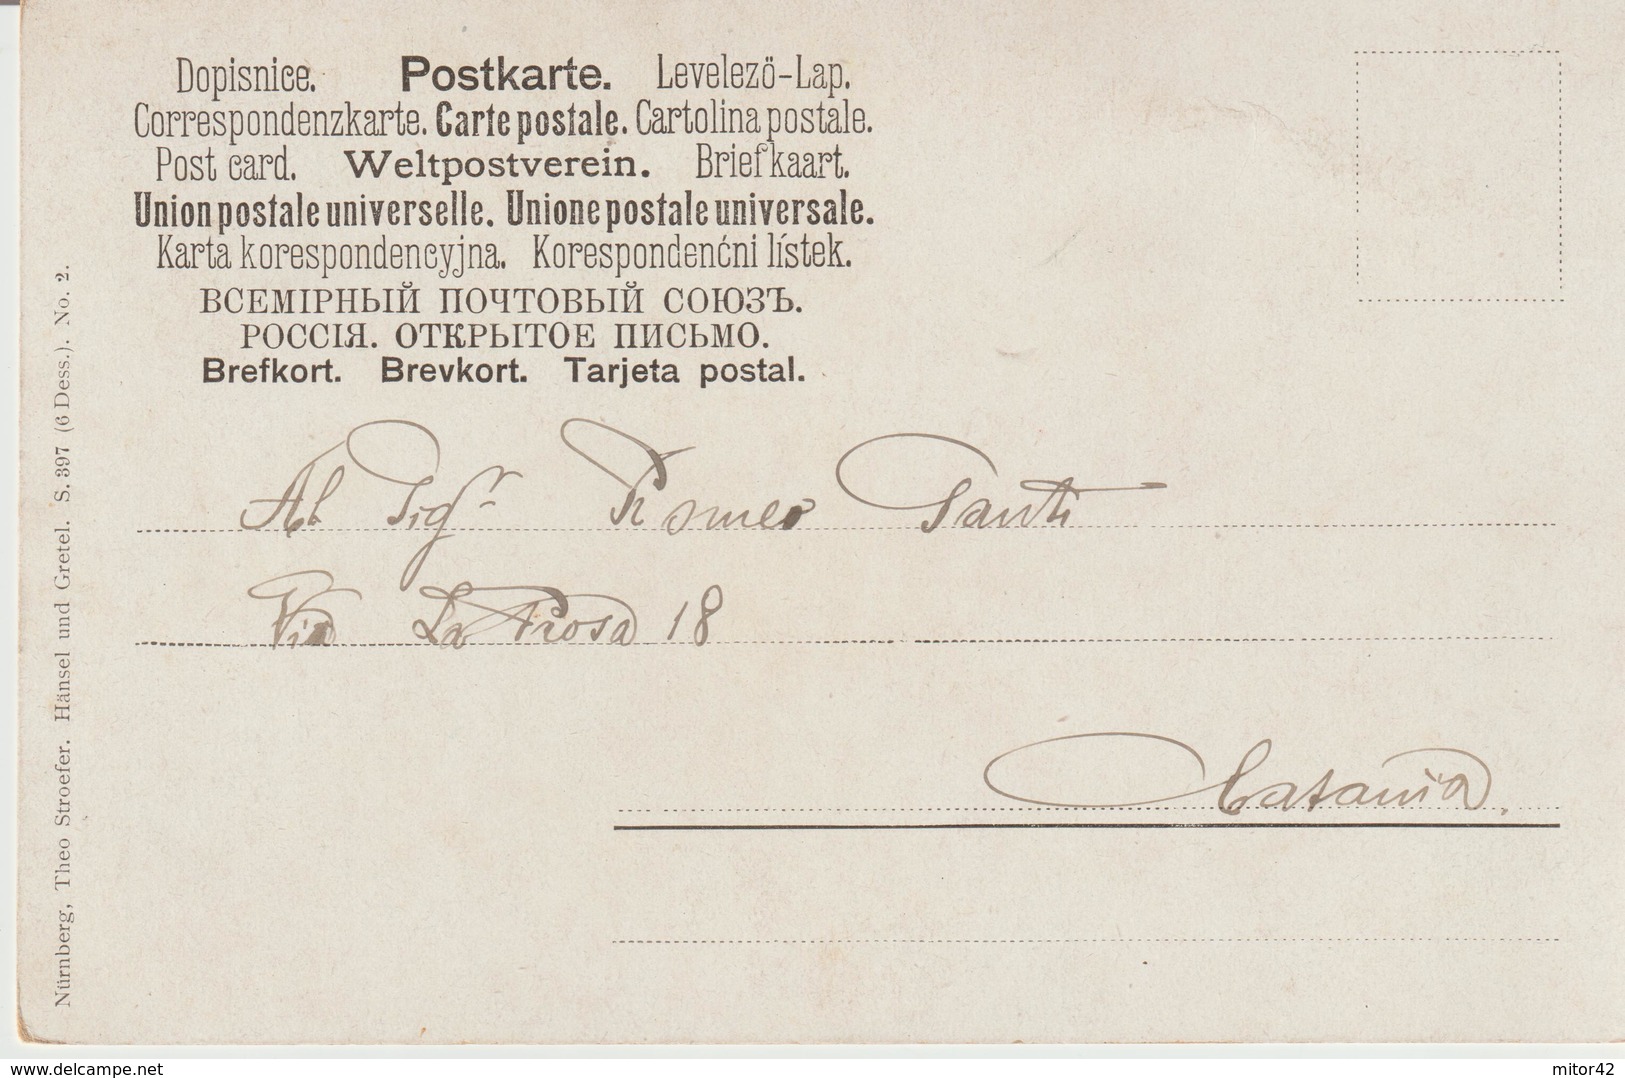 Dopisnice. Postkarte. Levelező-Lap.
Correspondenzkarte. Carte postale. Cartolina postale.
Post card. Weltpostverein. Briefkaart.
Union postale universelle. Unione postale universale.
Karta korespondencyjna. Korespondenćni lístek.
ВСЕМІРНЫЙ ПОЧТОВЫЙ СОЮЗЪ.
РОССІЯ. ОТКРЫТОЕ ПИСЬМО.
Brefkort. Brevkort. Tarjeta postal.
Al Sigr Romeo Santi
Via La Rosa 18
Catania.
Nürnberg, Theo Stroefer. Hänsel und Gretel. S. 397 (6 Dess.). No. 2.
www.delcampe.net
mitor42